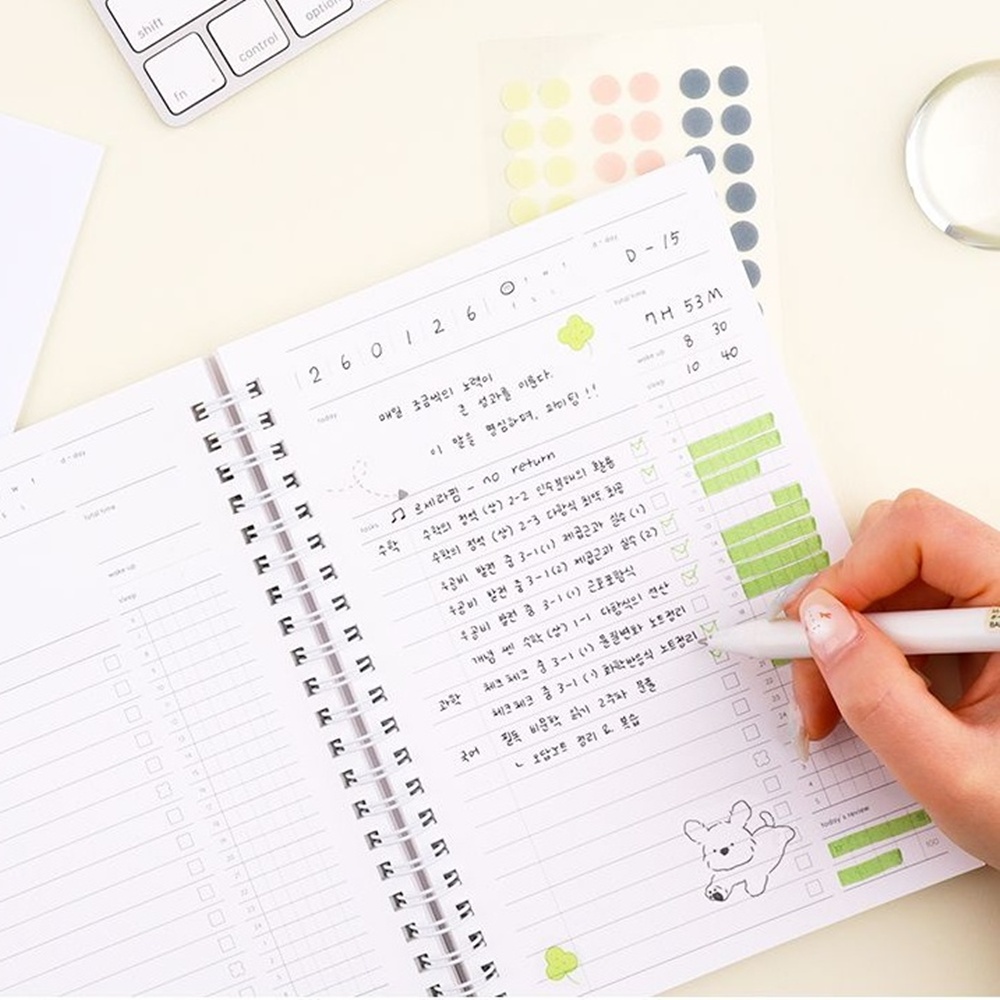 shift
fn
control
option
d - day
total time
wake up
sleep
260126
m t w t
f s s
d - day
D - 15
total time
7H 53M
wake up
8 30
sleep
10 40
today
매일 조금씩의 노력이
큰 성과를 이룬다.
이 말을 명심하며, 파이팅!!
tasks
♫ 르세라핌 - no return
수학 수학의 정석 (상) 2-2 인수분해의 활용
수학의 정석 (상) 2-3 다항식
우공비 발전 중 3-1 (1) 제곱근과 실수 (1)
우공비 발전 중 3-1 (2) 제곱근과 실수 (2)
우공비 발전 중 3-1 (1) 근호포함식
개념 쎈 수학 (상) 1-1 다항식의 연산
과학 체크체크 중 3-1 (1) 물질변화 노트정리
체크체크 중 3-1 (1) 화학반응식 노트정리
국어 필독 비문학 읽기 2주차 문풀
ㄴ 오답노트 정리 & 복습
today's review
100